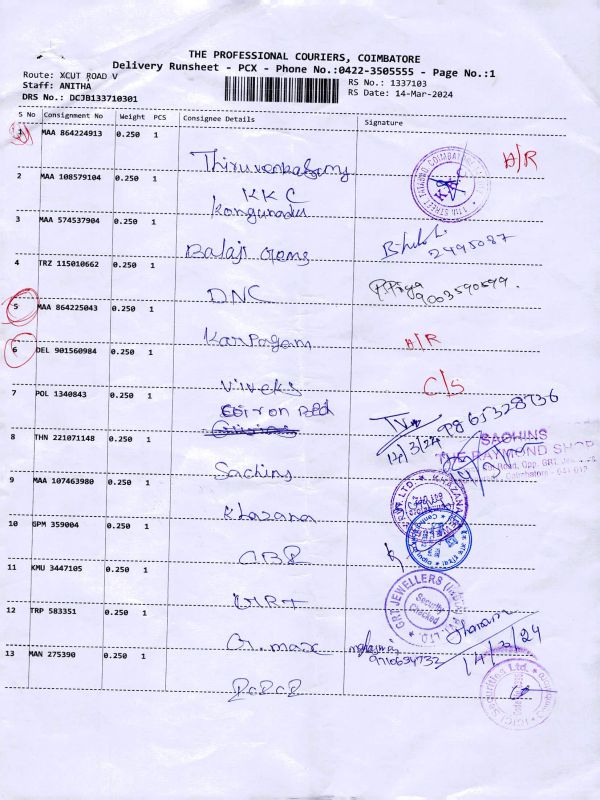 THE PROFESSIONAL COURIERS, COIMBATORE
Delivery Runsheet - PCX - Phone No.:0422-3505555 - Page No.:1
Route: XCUT ROAD V
RS No.: 1337103
Staff: ANITHA
RS Date: 14-Mar-2024
DRS No.: DCJB133710301
S No Consignment No Weight PCS Consignee Details Signature
1 MAA 864224913 0.250 1 A/R
2 MAA 108579104 0.250 1 KKC
3 MAA 574537904 0.250 1 Balaji 2495087
4 TRZ 115010662 0.250 1 DNC 9003590599
5 MAA 864225043 0.250 1 Karpagam A/R
6 DEL 901560984 0.250 1 Viveks C/S
7 POL 1340843 0.250 1 14/3/24 9865328736
8 THN 221071148 0.250 1 Sachins
SACHINS
THE RAYMOND SHOP
9 MAA 107463980 0.250 1 Khazana
10 GPM 359004 0.250 1
11 KMU 3447105 0.250 1
GRT JEWELLERS (INDIA) PVT. LTD.
Security Checked
12 TRP 583351 0.250 1 9710634732 14/3/24
13 MAN 275390 0.250 1
ICICI Securities Ltd.